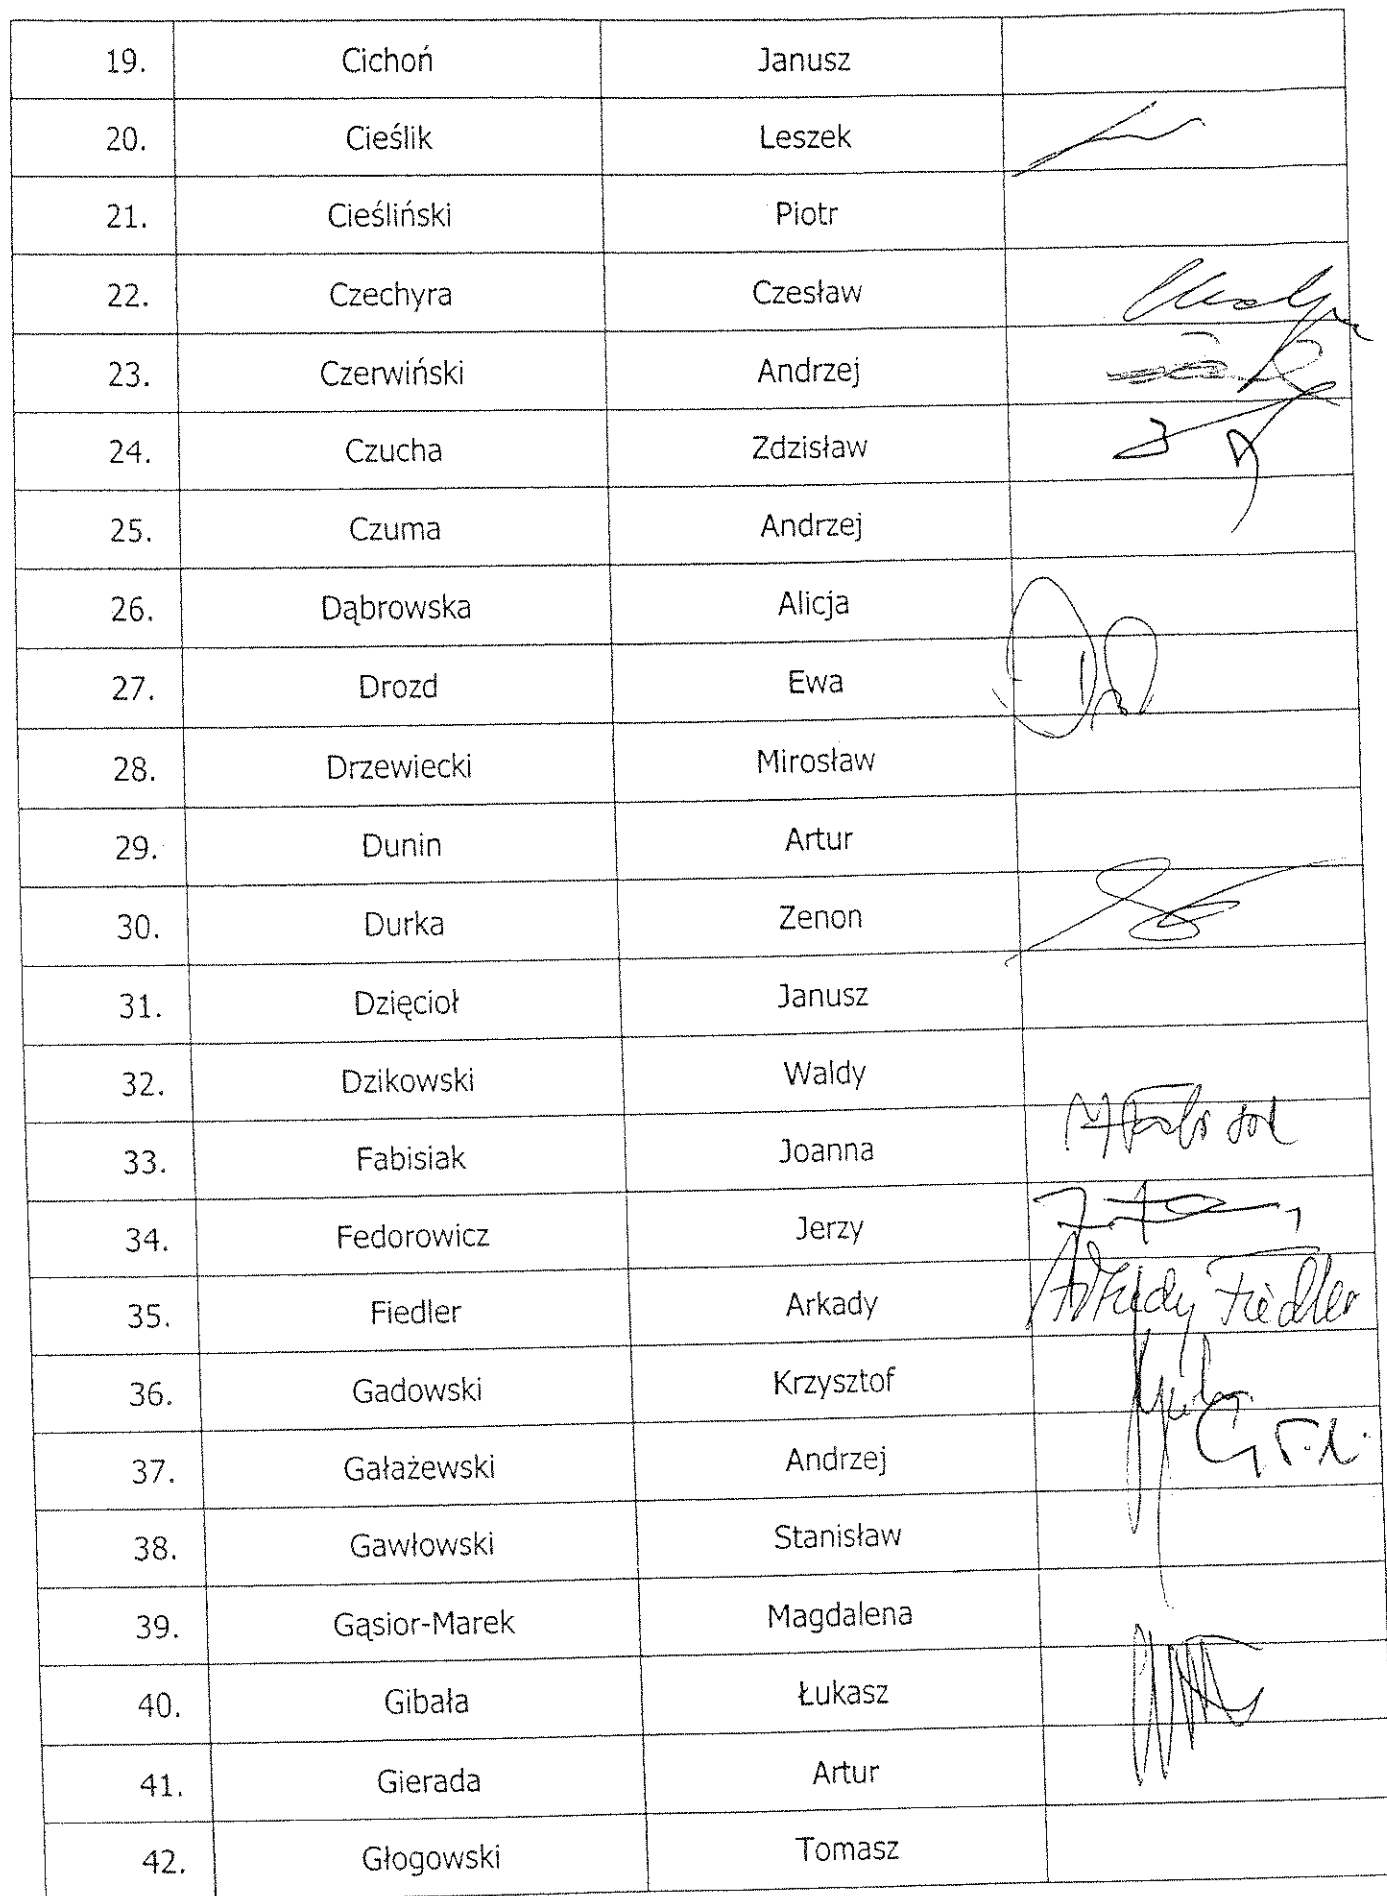 19. Cichoń Janusz
20. Cieślik Leszek
21. Cieśliński Piotr
22. Czechyra Czesław
23. Czerwiński Andrzej
24. Czucha Zdzisław
25. Czuma Andrzej
26. Dąbrowska Alicja
27. Drozd Ewa
28. Drzewiecki Mirosław
29. Dunin Artur
30. Durka Zenon
31. Dzięcioł Janusz
32. Dzikowski Waldy
33. Fabisiak Joanna
34. Fedorowicz Jerzy
35. Fiedler Arkady Arkady Fiedler
36. Gadowski Krzysztof
37. Gałażewski Andrzej
38. Gawłowski Stanisław
39. Gąsior-Marek Magdalena
40. Gibała Łukasz
41. Gierada Artur
42. Głogowski Tomasz